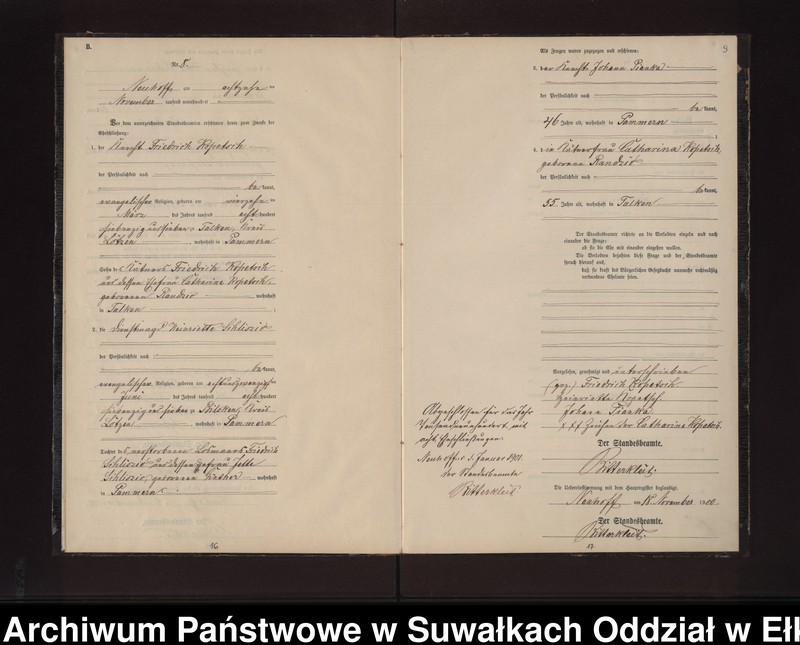 B.
Nr. 8.
Neuhoff, am achtzehn ten
November tausend neunhundert
Vor dem unterzeichneten Standesbeamten erschienen heute zum Zwecke der
Eheschließung:
1. der Knecht Friedrich Kopetsch
der Persönlichkeit nach
be kannt,
evangelischer Religion, geboren am vierzehn ten
März des Jahres tausend acht hundert
siebenzig und sieben zu Talken, Kreis
Lötzen, wohnhaft in Pammern
Sohn des Kätners Friedrich Kopetsch
und dessen Ehefrau Catharina Kopetsch,
geborenen Randzio wohnhaft
in Talken;
2. die Dienstmagd Henriette
der Persönlichkeit nach
be kannt,
evangelischer Religion, geboren am achtundzwanzigsten
Juni des Jahres tausend acht hundert
siebenzig und sieben zu Kreis
Lötzen, wohnhaft in Pammern
Tochter des verstorbenen Losmanns Friedrich
und dessen Ehefrau
geborenen wohnhaft
in Pammern
16
9
Als Zeugen waren zugezogen und erschienen:
3. der Knecht Johann Pianka
der Persönlichkeit nach
be kannt,
46 Jahre alt, wohnhaft in Pammern;
4. die Kätnerfrau Catharina Kopetsch,
geborene Randzio
der Persönlichkeit nach
be kannt,
55 Jahre alt, wohnhaft in Talken
Der Standesbeamte richtete an die Verlobten einzeln und nach
einander die Frage:
ob sie die Ehe mit einander eingehen wollen.
Die Verlobten bejahten diese Frage und der Standesbeamte
sprach hierauf aus,
daß sie kraft des Bürgerlichen Gesetzbuchs nunmehr rechtmäßig
verbundene Eheleute seien.
Vorgelesen, genehmigt und unterschrieben
(gez.) Friedrich Kopetsch
Henriette Kopetsch
Johann Pianka
xxx Zeichen der Catharina Kopetsch
Der Standesbeamte.
Ritterkleit.
Die Uebereinstimmung mit dem Hauptregister beglaubigt.
Neuhoff, am 18. November 1900
Der Standesbeamte.
Ritterkleit.
17
Abgeschlossen für das Jahr
Tausendneunhundert mit
acht Eheschließungen.
Neuhoff, Januar 1901.
Der Standesbeamte
Ritterkleit
Archiwum Państwowe w Suwałkach Oddział w Eł